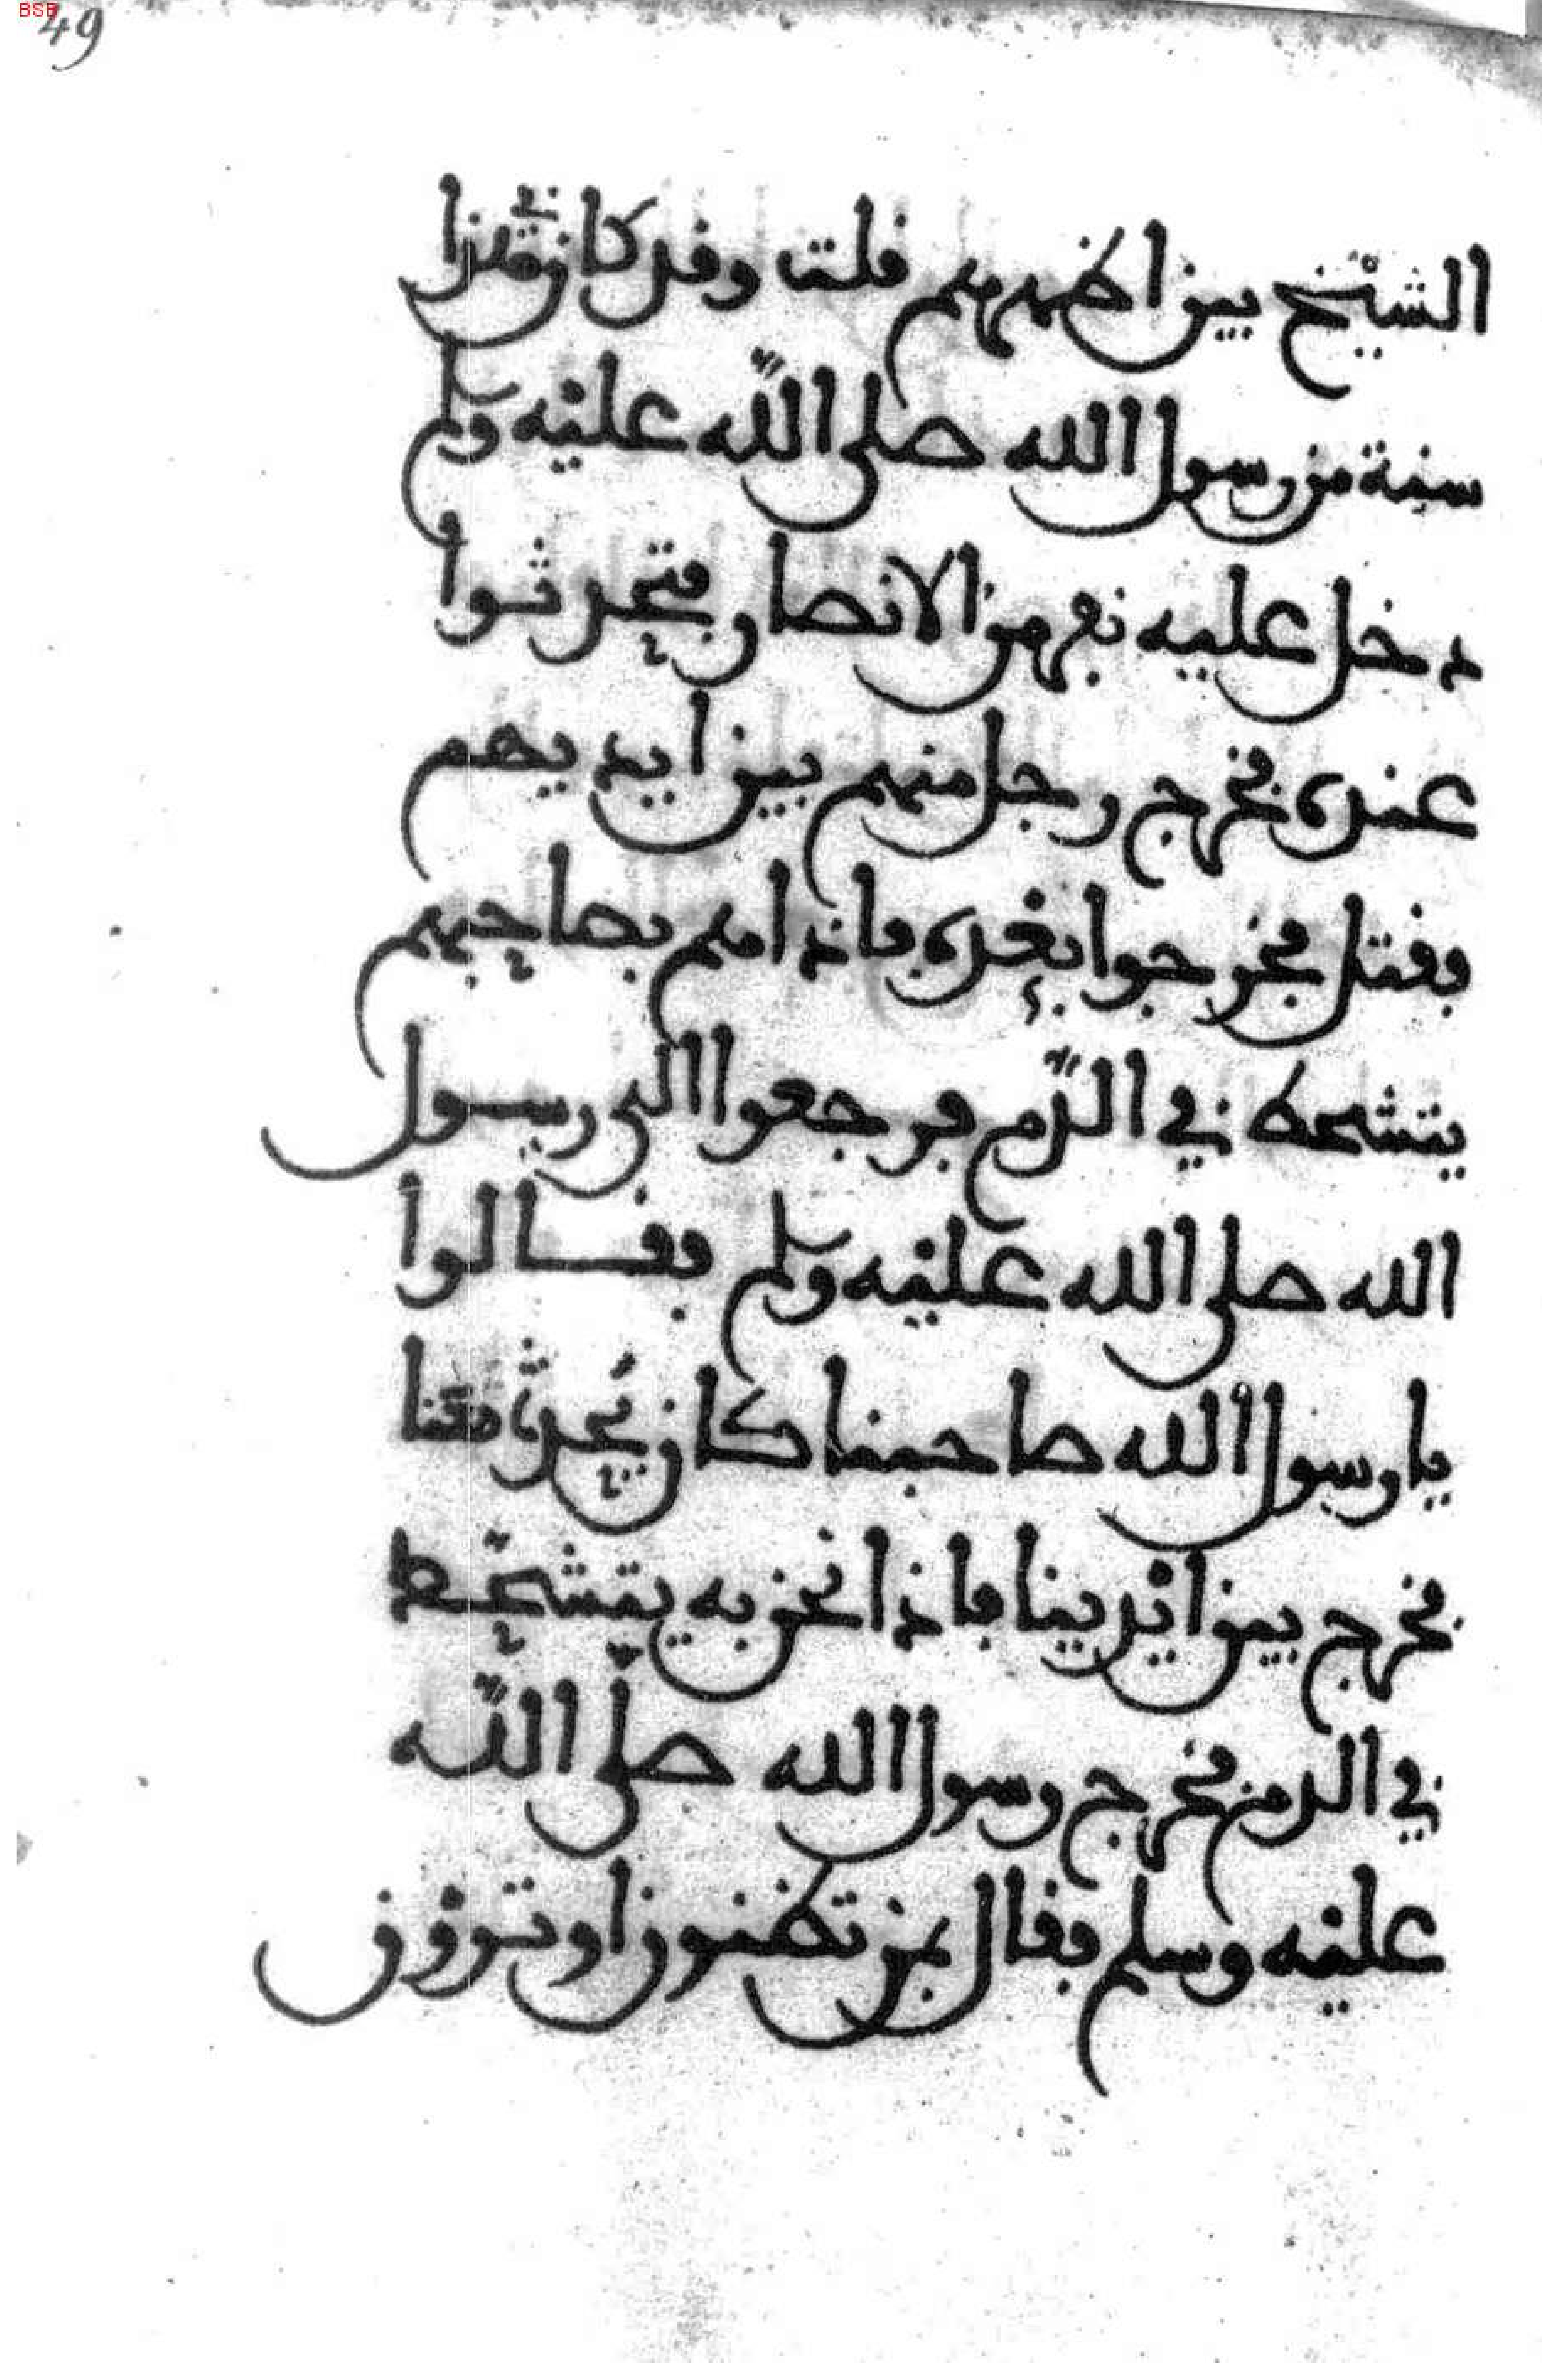 BSB
49
الشيخ بين اظهرهم قلت وقد كان في هذا
سنة من رسول الله صلى الله عليه وسلم
دخل عليه نفر من الانصار فتحدثوا
عنده فخرج رجل منهم بين ايديهم
فقتل فخرجوا بعده فاذا هم بصاحبهم
يتشحط في الدم فرجعوا الى رسول
الله صلى الله عليه وسلم فقالوا
يا رسول الله صاحبنا كان يحدث معنا
فخرج بين ايدينا فاذا نحن به يتشحط
في الدم فخرج رسول الله صلى الله
عليه وسلم فقال بمن تظنون او ترون